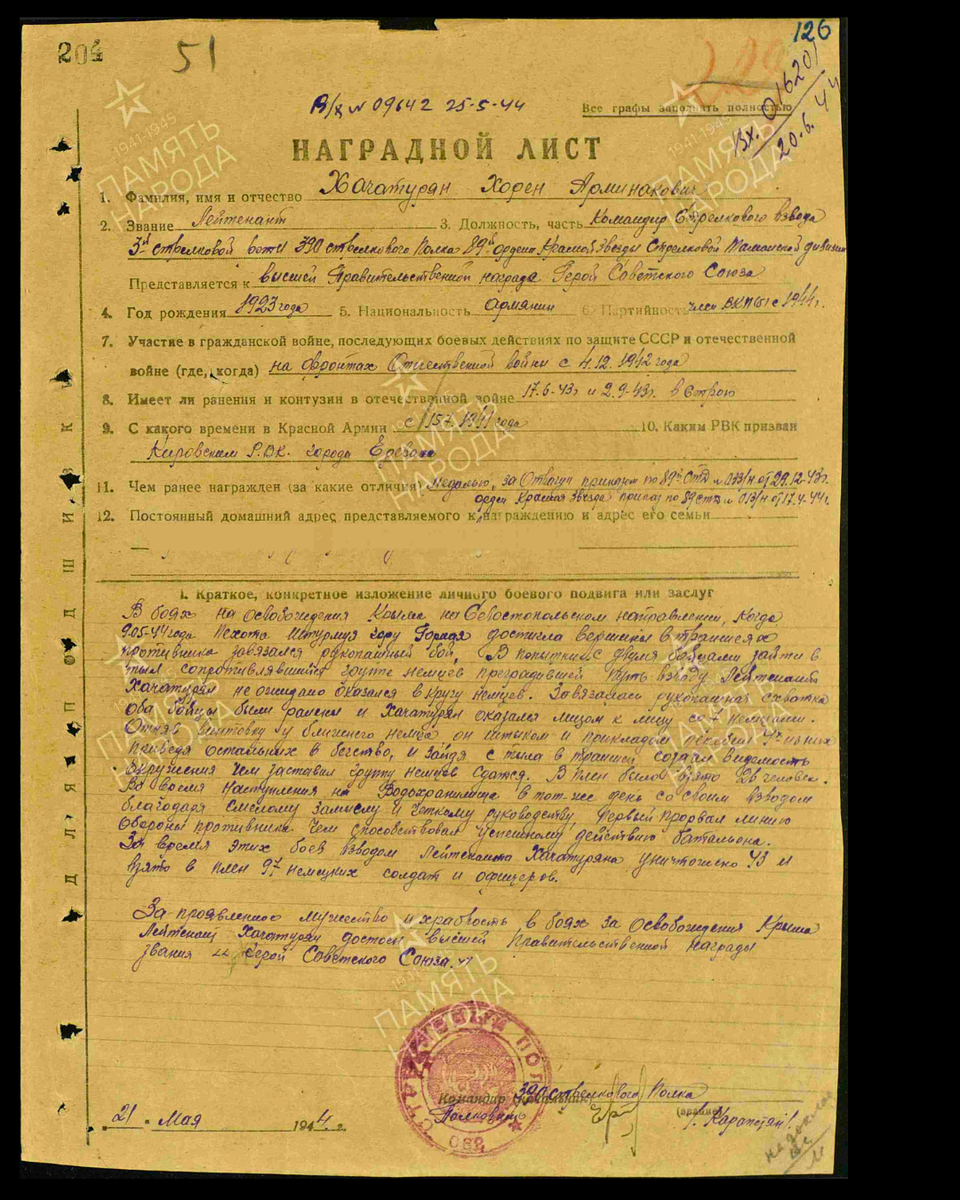 204
51
126
229
Вх. 01620
20.6.44
В/х № 09642 25-5-44
Все графы заполнять полностью
НАГРАДНОЙ ЛИСТ
1. Фамилия, имя и отчество Хачатурян Хорен Арминакович
2. Звание Лейтенант 3. Должность, часть Командир Стрелкового взвода
3й стрелковой роты 390 стрелкового Полка 89й ордена Красной Звезды Стрелковой Таманской дивизии
Представляется к высшей Правительственной награда Герой Советского Союза
4. Год рождения 1923 года 5. Национальность Армянин 6. Партийность член ВКП(б) с 1944г.
7. Участие в гражданской войне, последующих боевых действиях по защите СССР и отечественной
войне (где, когда) на фронтах Отечественной войны с 4.12.1942 года
8. Имеет ли ранения и контузии в отечественной войне 17.6-43г и 2.9-43г. в Строю
9. С какого времени в Красной Армии с 1941 года 10. Каким РВК призван
Кировским Р.В.К. города Еревана
11. Чем ранее награжден (за какие отличия) Медалью, за Отвагу приказ по 89й СТД № 073/н от 29.12.43г.
орден Красная Звезда приказ по 89 стд № 013/н от 17.4.44г.
12. Постоянный домашний адрес представляемого к награждению и адрес его семьи
I. Краткое, конкретное изложение личного боевого подвига или заслуг
В боях на освобождения Крыма на Севостопольском направлении, когда
9.05-44 года Пехота штурмуя гору Горидя достигла вершины в траншеях
противника завязался рукопашный бой. В попытки с двумя бойцами зайти в
тыл сопротивлявшийся группе немцев преградившей путь взводу Лейтенант
Хачатурян не ожидано оказался в кругу немцев. Завязалась рукопашная схватка
оба бойцы были ранены и Хачатурян оказался лицом к лицу с 7 немцами.
Отняв винтовку у ближнего немца он штыком и прикладом из них
приведя остальных в бегство, и зайдя с тыла в траншеи создал видимость
окружения чем заставил группу немцев сдатся. В плен было взято 26 человек.
Во время наступления на Водохранилища в тот же день со своим взводом
благодаря смелому замыслу и четкому руководству, первый прорвал линию
Обороны противника чем способствовал успешному действию батальона.
За время этих боев взводом Лейтенанта Хачатуряна уничтожено 43 и
взято в плен 97 немецких солдат и офицеров.
За проявленою мужество и храбрость в боях за освобождения Крыма
Лейтенант Хачатурян достоен высшей Правительственной Награды
звания „Герой Советского Союза."
СТРЕЛКОВЫЙ ПОЛК
390
Командир (Начальник) 390 стрелкового Полка
Полковник (звание) /. Карапетян/.
21 Мая 1944 г.
ДЛЯ ПОДШИВКИ
1941-1945
ПАМЯТЬ
НАРОДА